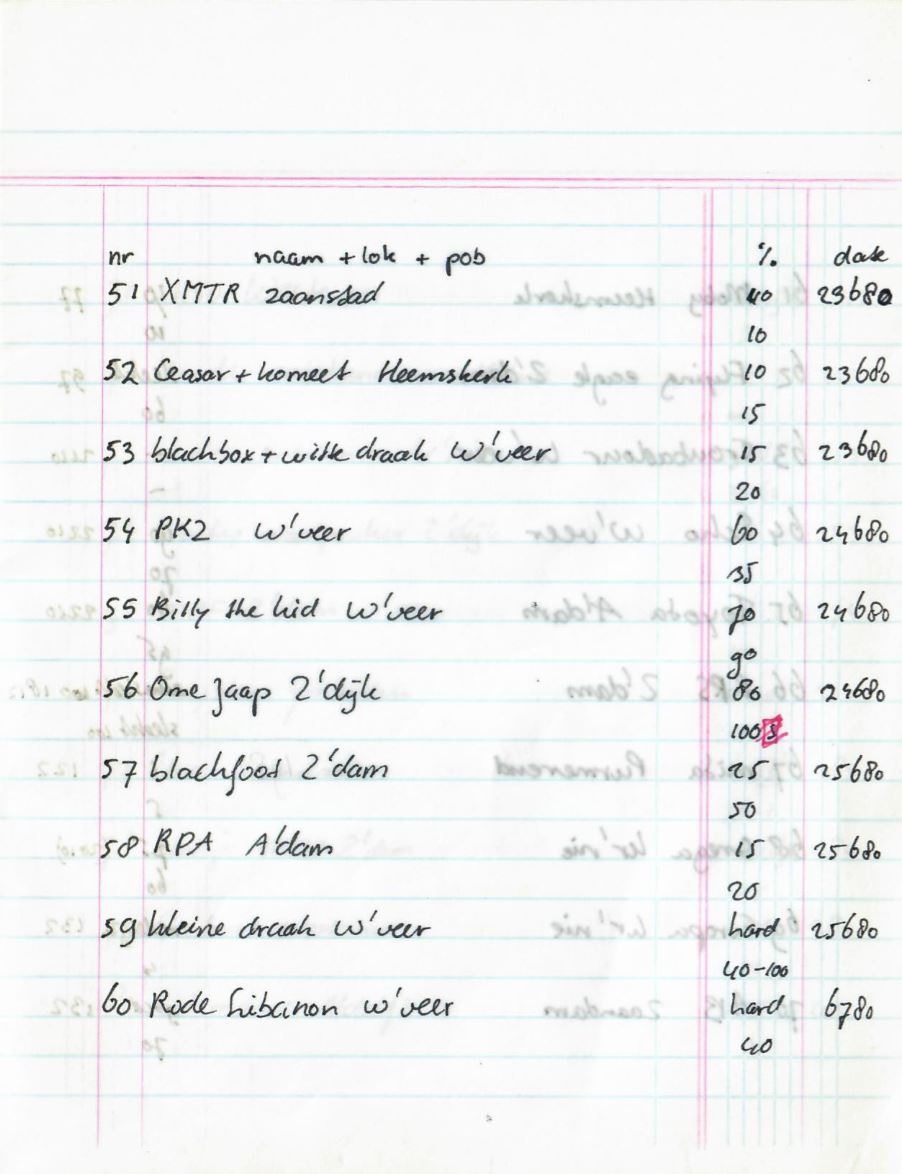 nr naam + lok + pob % date
51 XMTR zaanstad 40 23680
10
52 Ceasar + komeet Heemskerk 10 23680
15
53 blackbox + witte draak W'veer 15 23680
20
54 PK2 W'veer 60 24680
35
55 Billy the kid W'veer 70 24680
90
56 Ome Jaap Z'dijk 80 24680
100 S
57 blackfoot Z'dam 25 25680
50
58 RPA A'dam 15 25680
20
59 kleine draak W'veer hard 25680
40-100
60 Rode Libanon W'veer hard 6780
40